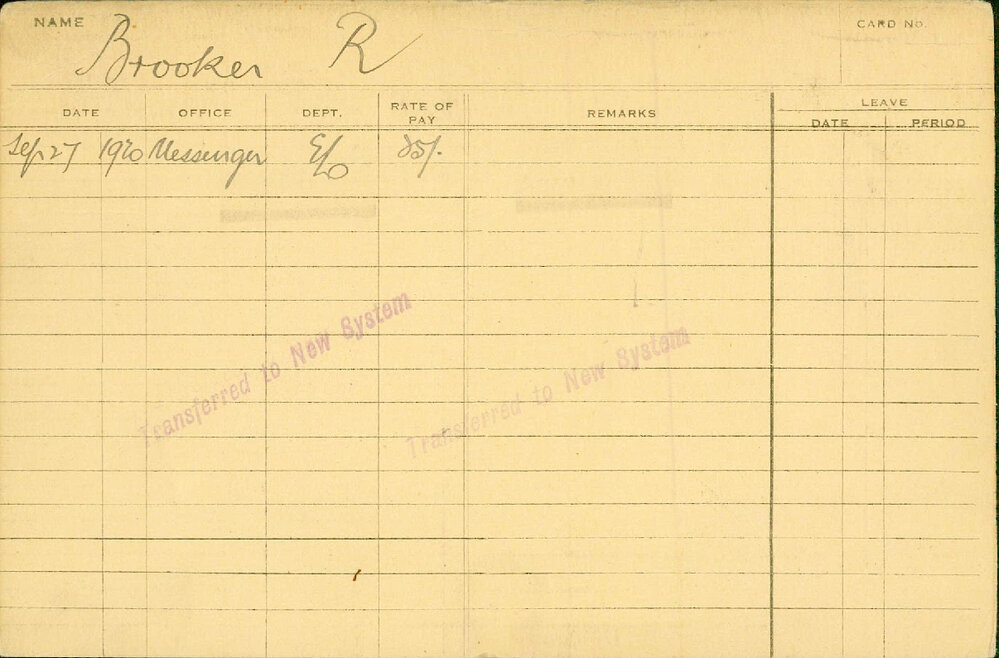 NAME Brooker R CARD No.
DATE OFFICE DEPT. RATE OF PAY REMARKS LEAVE
DATE PERIOD
Sep 27 1920 Messenger E/O 35/.
Transferred to New System
Transferred to New System